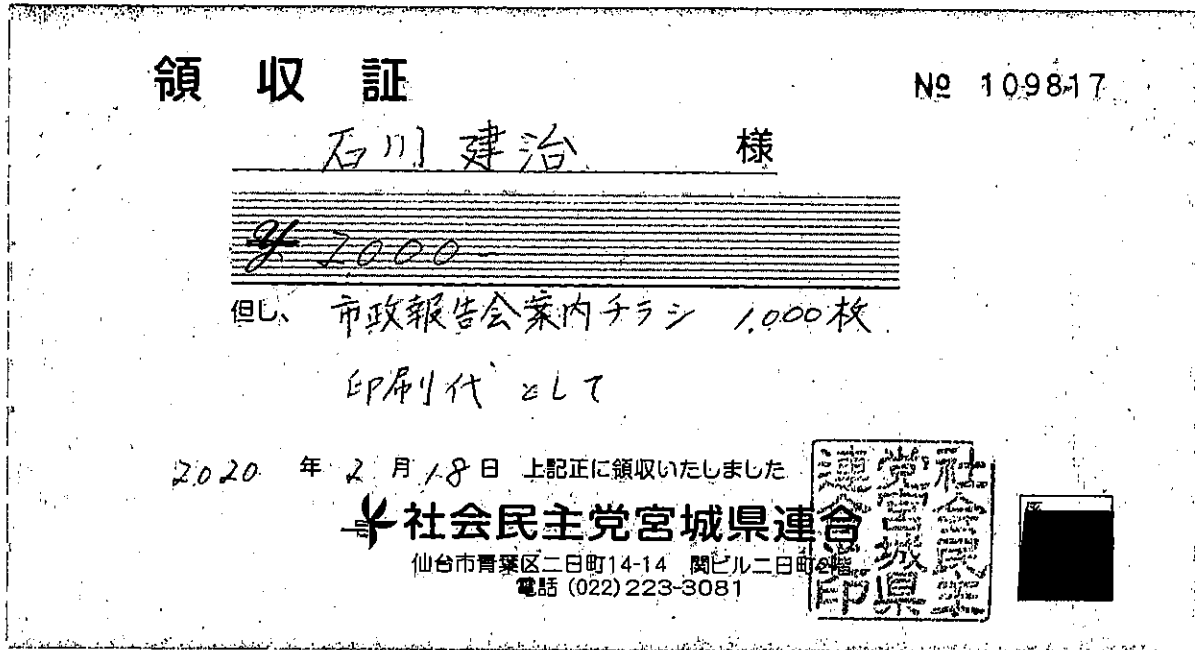 領収証
№ 109817
石川 建治 様
¥ 2000-
但し、 市政報告会案内チラシ 1,000枚
印刷代 として
2020 年 2 月 18 日 上記正に領収いたしました
社会民主党宮城県連合
仙台市青葉区二日町14-14 関ビル二日町2階
電話 (022) 223-3081
社会民主
党宮城県
連合之印
係